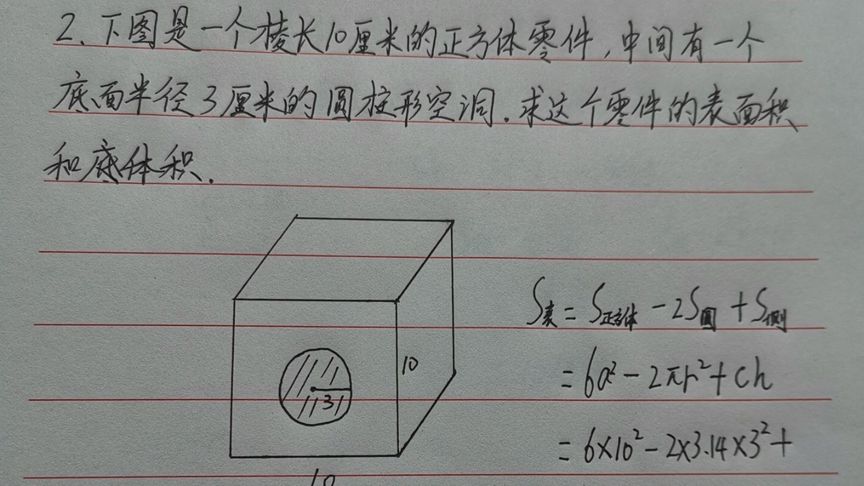 2、下图是一个棱长10厘米的正方体零件,中间有一个
底面半径3厘米的圆柱形空洞.求这个零件的表面积
和底体积.
10
3
10
S表=S正方体-2S圆+S侧
=6a²-2πr²+ch
=6×10²-2×3.14×3²+